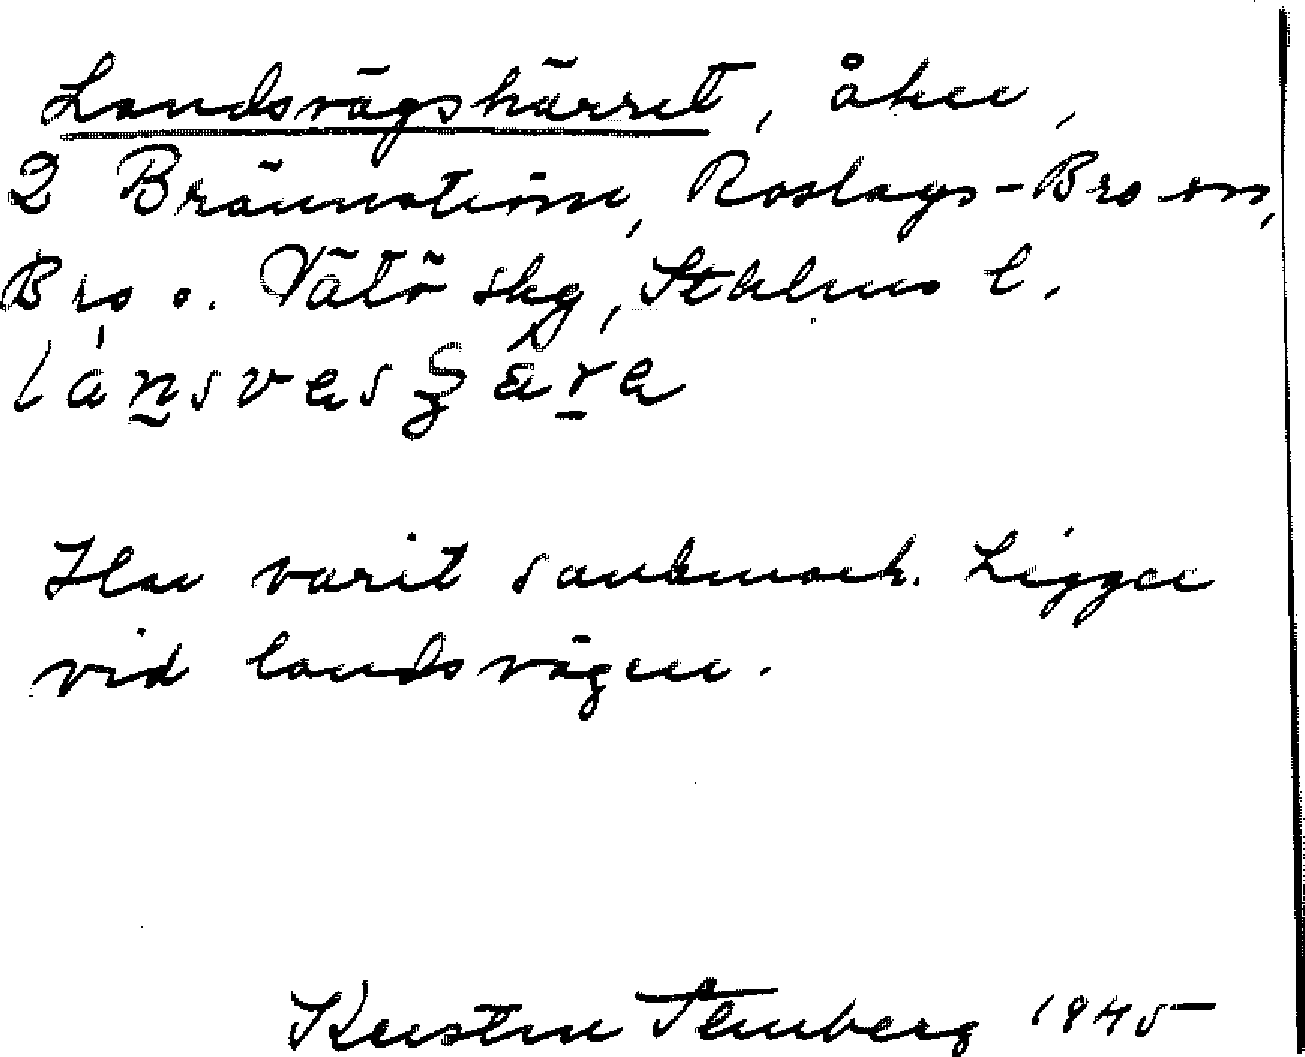 Landsvägskärret, åker,
2 Brännström, Roslags-Bro sn,
Bro o. Vätö skg, Sthlms l.
Har varit sankmark. Ligger
vid landsvägen.
Kerstin Stenberg 1945